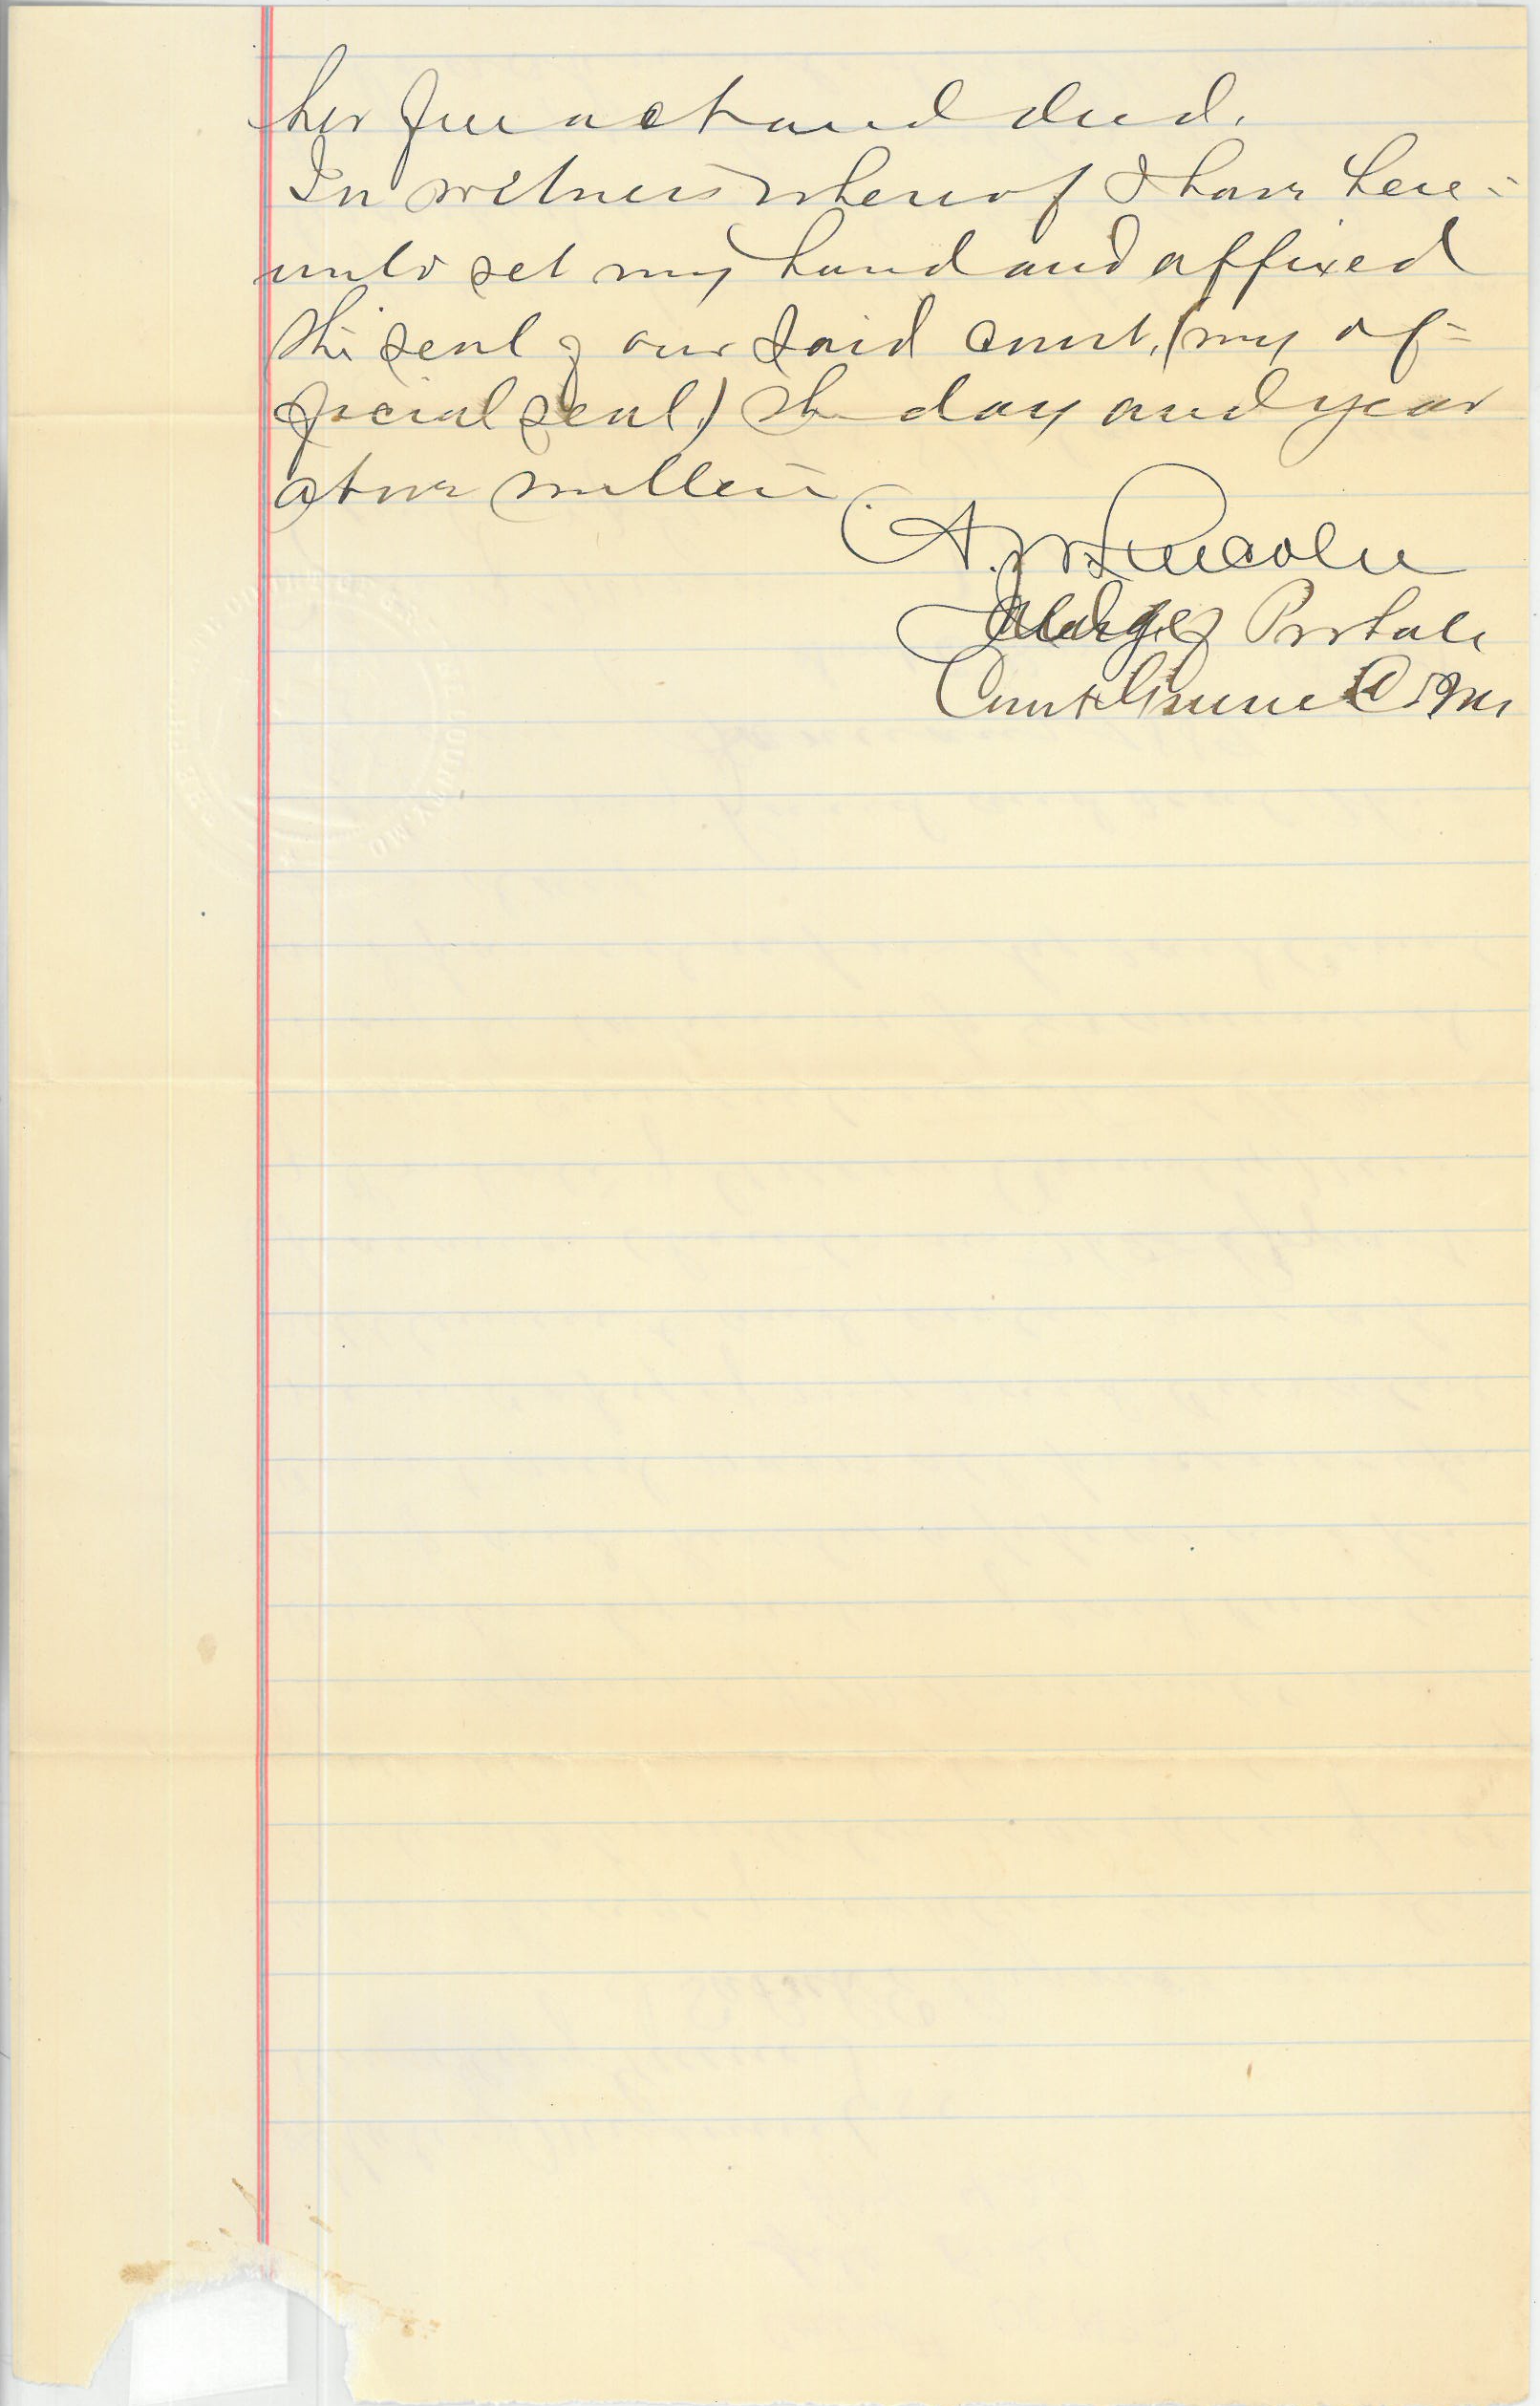 her free act and deed.
In witness whereof I have here-
unto set my hand and affixed
the seal of our said court, (my of-
ficial seal.) the day and year
above written.
A. W. Lincoln
Judge of Probate
Court Greene Co. Mo.
COUNTY, MO